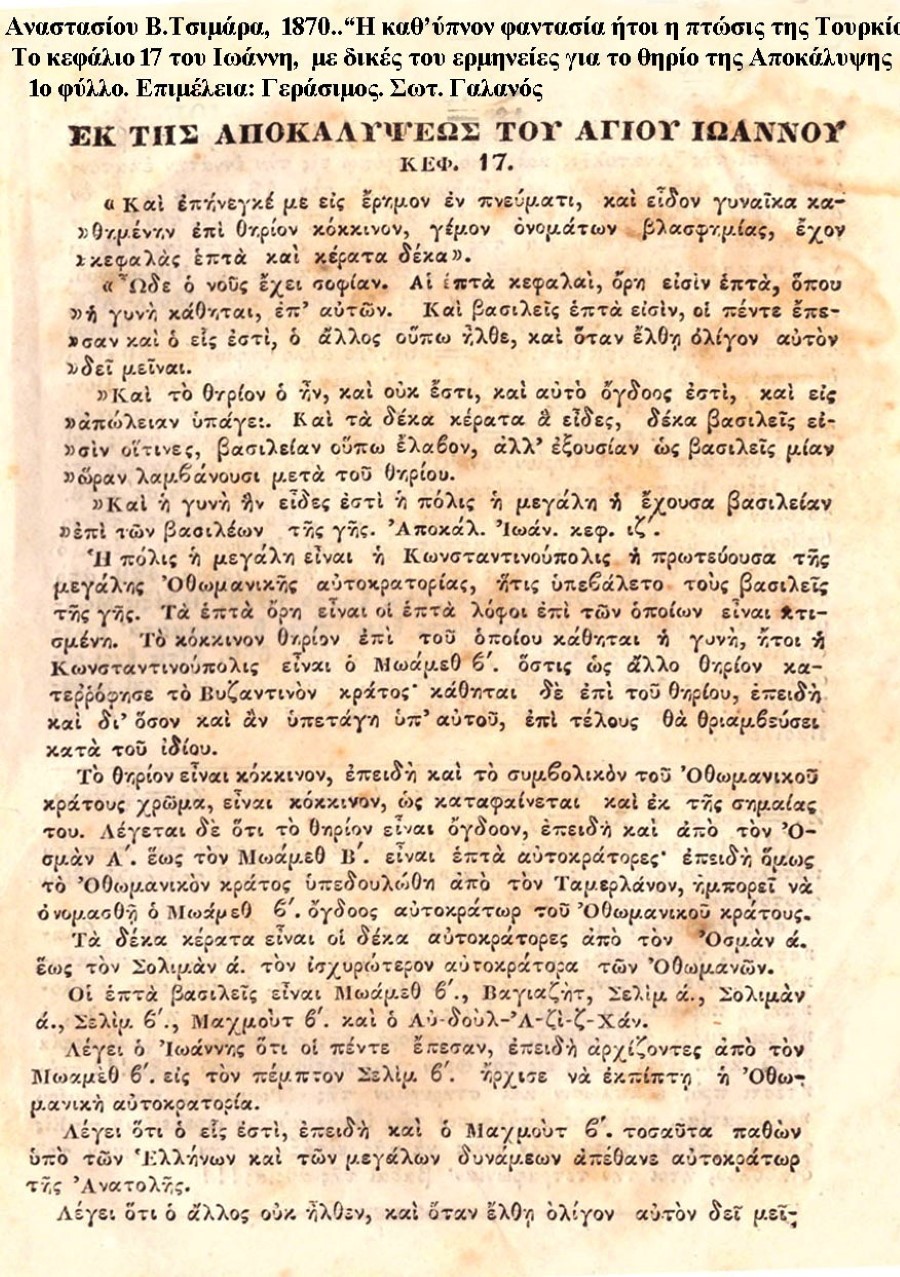 Αναστασίου Β.Τσιμάρα, 1870..“Η καθ’ύπνον φαντασία ήτοι η πτώσις της Τουρκίο
Το κεφάλιο 17 του Ιωάννη, με δικές του ερμηνείες για το θηρίο της Αποκάλυψης
1ο φύλλο. Επιμέλεια: Γεράσιμος. Σωτ. Γαλανός
ΕΚ ΤΗΣ ΑΠΟΚΑΛΥΨΕΩΣ ΤΟΥ ΑΓΙΟΥ ΙΩΑΝΝΟΥ
ΚΕΦ. 17.
« Καὶ ἐπήνεγκέ με εἰς ἔρημον ἐν πνεύματι, καὶ εἶδον γυναῖκα κα-
»θημένην ἐπὶ θηρίον κόκκινον, γέμον ὀνομάτων βλασφημίας, ἔχον
»κεφαλὰς ἑπτὰ καὶ κέρατα δέκα».
« Ὧδε ὁ νοῦς ἔχει σοφίαν. Αἱ ἑπτὰ κεφαλαὶ, ὄρη εἰσὶν ἑπτὰ, ὅπου
»ἡ γυνὴ κάθηται, ἐπ’ αὐτῶν. Καὶ βασιλεῖς ἑπτὰ εἰσὶν, οἱ πέντε ἔπε-
»σαν καὶ ὁ εἷς ἐστὶ, ὁ ἄλλος οὔπω ἦλθε, καὶ ὅταν ἔλθῃ ὀλίγον αὐτὸν
»δεῖ μεῖναι.
»Καὶ τὸ θηρίον ὁ ἦν, καὶ οὐκ ἔστι, καὶ αὐτὸ ὄγδοος ἐστὶ, καὶ εἰς
»ἀπώλειαν ὑπάγει. Καὶ τὰ δέκα κέρατα ἃ εἶδες, δέκα βασιλεῖς εἰ-
»σὶν οἵτινες, βασιλείαν οὔπω ἔλαβον, ἀλλ’ ἐξουσίαν ὡς βασιλεῖς μίαν
»ὥραν λαμβάνουσι μετὰ τοῦ θηρίου.
»Καὶ ἡ γυνὴ ἣν εἶδες ἐστὶ ἡ πόλις ἡ μεγάλη ἡ ἔχουσα βασιλείαν
»ἐπὶ τῶν βασιλέων τῆς γῆς. Ἀποκάλ. Ἰωάν. κεφ. ιζ΄.
Ἡ πόλις ἡ μεγάλη εἶναι ἡ Κωνσταντινούπολις ἡ πρωτεύουσα τῆς
μεγάλης Ὀθωμανικῆς αὐτοκρατορίας, ἥτις ὑπεβάλετο τοὺς βασιλεῖς
τῆς γῆς. Τὰ ἑπτὰ ὄρη εἶναι οἱ ἑπτὰ λόφοι ἐπὶ τῶν ὁποίων εἶναι κτι-
σμένη. Τὸ κόκκινον θηρίον ἐπὶ τοῦ ὁποίου κάθηται ἡ γυνὴ, ἤτοι ἡ
Κωνσταντινούπολις εἶναι ὁ Μωάμεθ β΄. ὅστις ὡς ἄλλο θηρίον κα-
τεῤῥόφησε τὸ Βυζαντινὸν κράτος· κάθηται δὲ ἐπὶ τοῦ θηρίου, ἐπειδὴ
καὶ δι’ ὅσον καὶ ἂν ὑπετάγη ὑπ’ αὐτοῦ, ἐπὶ τέλους θὰ θριαμβεύσει
κατὰ τοῦ ἰδίου.
Τὸ θηρίον εἶναι κόκκινον, ἐπειδὴ καὶ τὸ συμβολικὸν τοῦ Ὀθωμανικοῦ
κράτους χρῶμα, εἶναι κόκκινον, ὡς καταφαίνεται καὶ ἐκ τῆς σημαίας
του. Λέγεται δὲ ὅτι τὸ θηρίον εἶναι ὄγδοον, ἐπειδὴ καὶ ἀπὸ τὸν Ὀ-
σμὰν Α΄. ἕως τὸν Μωάμεθ Β΄. εἶναι ἑπτὰ αὐτοκράτορες· ἐπειδὴ ὅμως
τὸ Ὀθωμανικὸν κράτος ὑπεδουλώθη ἀπὸ τὸν Ταμερλάνον, ἠμπορεῖ νὰ
ὀνομασθῇ ὁ Μωάμεθ β΄. ὄγδοος αὐτοκράτωρ τοῦ Ὀθωμανικοῦ κράτους.
Τὰ δέκα κέρατα εἶναι οἱ δέκα αὐτοκράτορες ἀπὸ τὸν Ὀσμὰν ά.
ἕως τὸν Σολιμὰν ά. τὸν ἰσχυρώτερον αὐτοκράτορα τῶν Ὀθωμανῶν.
Οἱ ἑπτὰ βασιλεῖς εἶναι Μωάμεθ β΄., Βαγιαζὴτ, Σελὶμ ά., Σολιμὰν
ά., Σελὶμ β΄., Μαχμοὺτ β΄. καὶ ὁ Αὐ-δοὺλ-Ἀ-ζὶ-ζ-Χάν.
Λέγει ὁ Ἰωάννης ὅτι οἱ πέντε ἔπεσαν, ἐπειδὴ ἀρχίζοντες ἀπὸ τὸν
Μωαμὲθ β΄. εἰς τὸν πέμπτον Σελὶμ β΄. ἤρχισε νὰ ἐκπίπτῃ ἡ Ὀθω-
μανικὴ αὐτοκρατορία.
Λέγει ὅτι ὁ εἷς ἐστὶ, ἐπειδὴ καὶ ὁ Μαχμοὺτ β΄. τοσαῦτα παθὼν
ὑπὸ τῶν Ἑλλήνων καὶ τῶν μεγάλων δυνάμεων ἀπέθανε αὐτοκράτωρ
τῆς Ἀνατολῆς.
Λέγει ὅτι ὁ ἄλλος οὐκ ἦλθεν, καὶ ὅταν ἔλθῃ ὀλίγον αὐτὸν δεῖ μεῖ-